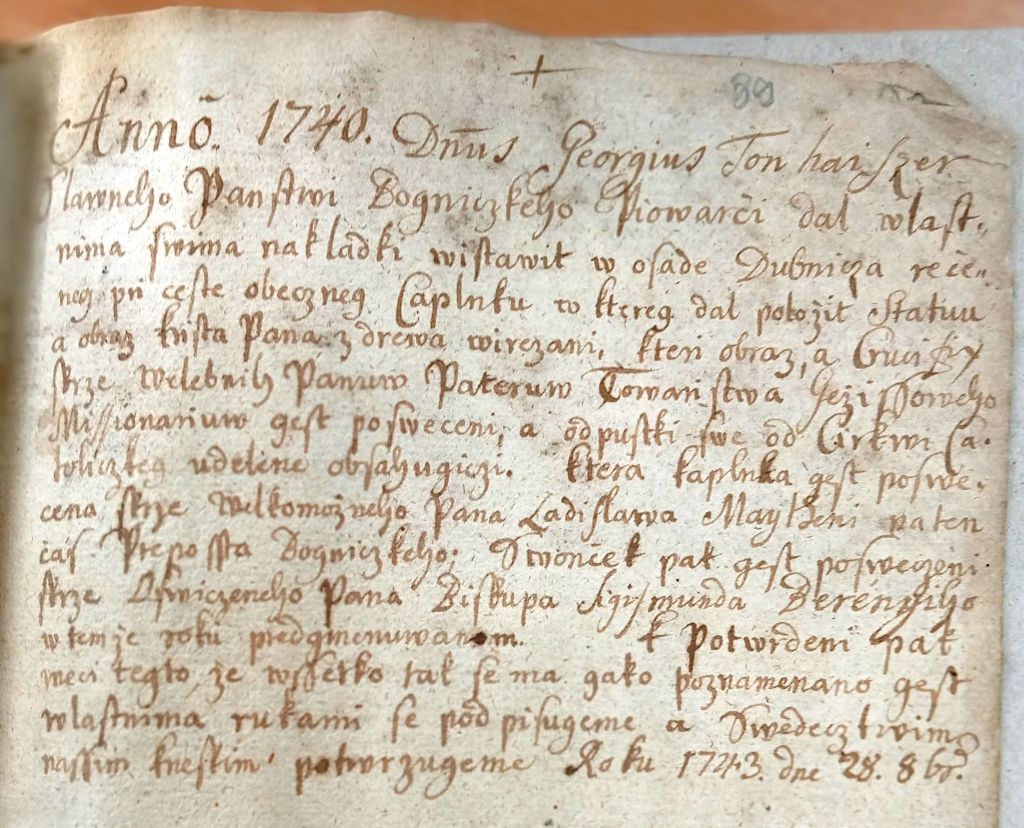 + 89
Annō. 1740. Dn̄us Georgius Tonhaiszer
Slawneho Panstwi Bogniczkeho Piowarči dal wlast=
nima swima nakladki wistawit w osade Dubnicza reče=
neg pri ceste obeczneg Caplnku w ktereg dal položit Statuu
a obraz krista Pana z drewa wirezani, kteri obraz, a Crucifix
skrze welebnih Panuw Pateruw Towaristwa Gežissoweho
Missionariuw gest posweceni, a odpustki swe od Cirkwi Ca=
toliczkeg udelene obsahugiczi. ktera kaplnka gest poswe=
cena skrze Welkomožneho Pana Ladislawa Maytheni na ten
čas Preposta Bogniczkeho; Swonček pak gest posweczeni
skrze Oswiczeneho Pana Biskupa Sigismunda Berénziho
w temže roku predgmenuwanom. k Potwrdeni pak
weci tegto, že wssetko tak se ma gako poznamenano gest
wlastnima rukami se podpisugeme a Swedecztwim
nassim knestim potwrzugeme Roku 1743. dne 28. 8br.